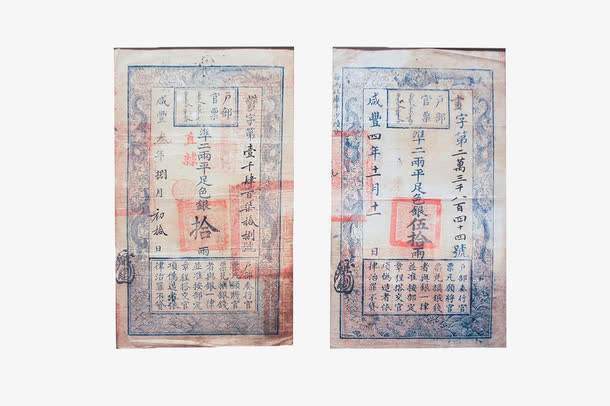 戶部
官票
字第壹千肆百柒拾捌號
準二兩平足色銀拾兩
直隸
咸豐叁年捌月初拾日
戶部奏行官
票凡願將官
票兌換銀錢
者與銀一律
並准按部定
章程搭交官
項偽造者依
律治罪不貸
戶部
官票
字第二萬三千八百四十四號
準二兩平足色銀伍拾兩
咸豐四年十一月十一日
戶部奏行官
票凡願將官
票兌換銀錢
者與銀一律
並准按部定
章程搭交官
項偽造者依
律治罪不貸